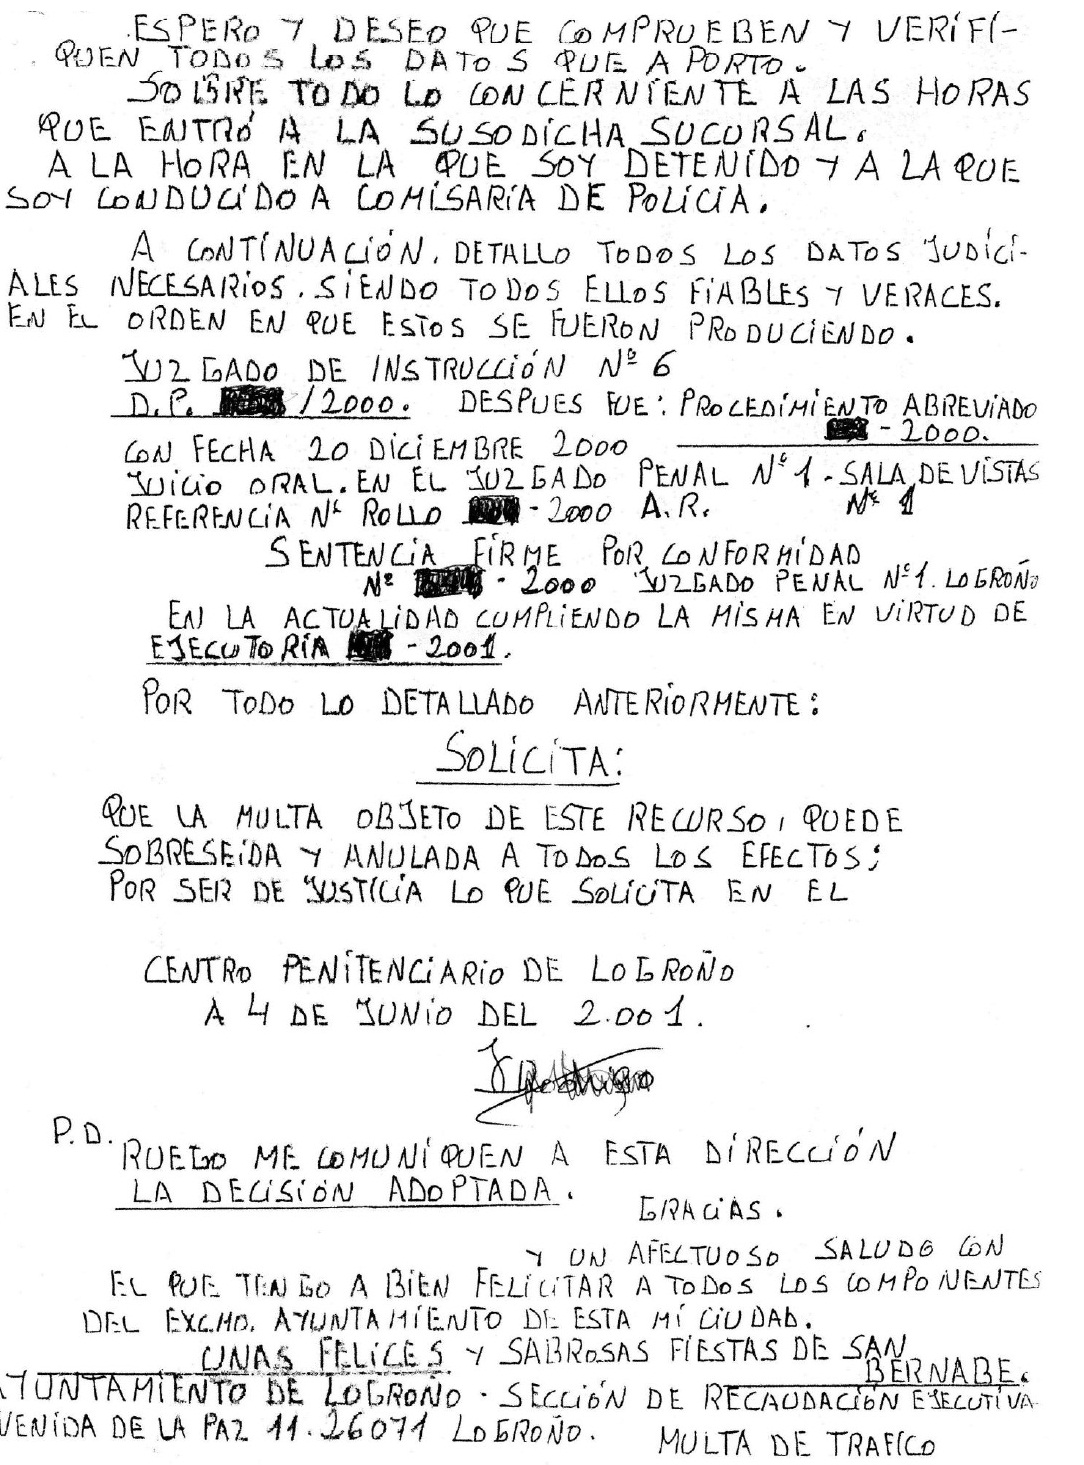 ESPERO Y DESEO QUE COMPRUEBEN Y VERIFI-
QUEN TODOS LOS DATOS QUE APORTO.
SOBRE TODO LO CONCERNIENTE A LAS HORAS
QUE ENTRÓ A LA SUSODICHA SUCURSAL.
A LA HORA EN LA QUE SOY DETENIDO Y A LA QUE
SOY CONDUCIDO A COMISARIA DE POLICIA.
A CONTINUACIÓN. DETALLO TODOS LOS DATOS JUDICI-
ALES NECESARIOS. SIENDO TODOS ELLOS FIABLES Y VERACES.
EN EL ORDEN EN QUE ESTOS SE FUERON PRODUCIENDO.
JUZGADO DE INSTRUCCIÓN Nº 6
D.P. /2000. DESPUES FUE: PROCEDIMIENTO ABREVIADO
- 2000.
CON FECHA 20 DICIEMBRE 2000
JUICIO ORAL. EN EL JUZGADO PENAL Nº 1 - SALA DE VISTAS
Nº 1
REFERENCIA Nº ROLLO - 2000 A.R.
SENTENCIA FIRME POR CONFORMIDAD
Nº - 2000 JUZGADO PENAL Nº 1. LOGROÑO
EN LA ACTUALIDAD CUMPLIENDO LA MISMA EN VIRTUD DE
EJECUTORIA - 2001.
POR TODO LO DETALLADO ANTERIORMENTE:
SOLICITA:
QUE LA MULTA OBJETO DE ESTE RECURSO, QUEDE
SOBRESEIDA Y ANULADA A TODOS LOS EFECTOS;
POR SER DE JUSTICIA LO QUE SOLICITA EN EL
CENTRO PENITENCIARIO DE LOGROÑO
A 4 DE JUNIO DEL 2.001.
P.D. RUEGO ME COMUNIQUEN A ESTA DIRECCIÓN
LA DECISIÓN ADOPTADA.
GRACIAS.
Y UN AFECTUOSO SALUDO CON
EL QUE TENGO A BIEN FELICITAR A TODOS LOS COMPONENTES
DEL EXCMO. AYUNTAMIENTO DE ESTA MI CIUDAD.
UNAS FELICES Y SABROSAS FIESTAS DE SAN
BERNABE.
AYUNTAMIENTO DE LOGROÑO - SECCIÓN DE RECAUDACIÓN EJECUTIVA
VENIDA DE LA PAZ 11. 26071 LOGROÑO.
MULTA DE TRAFICO